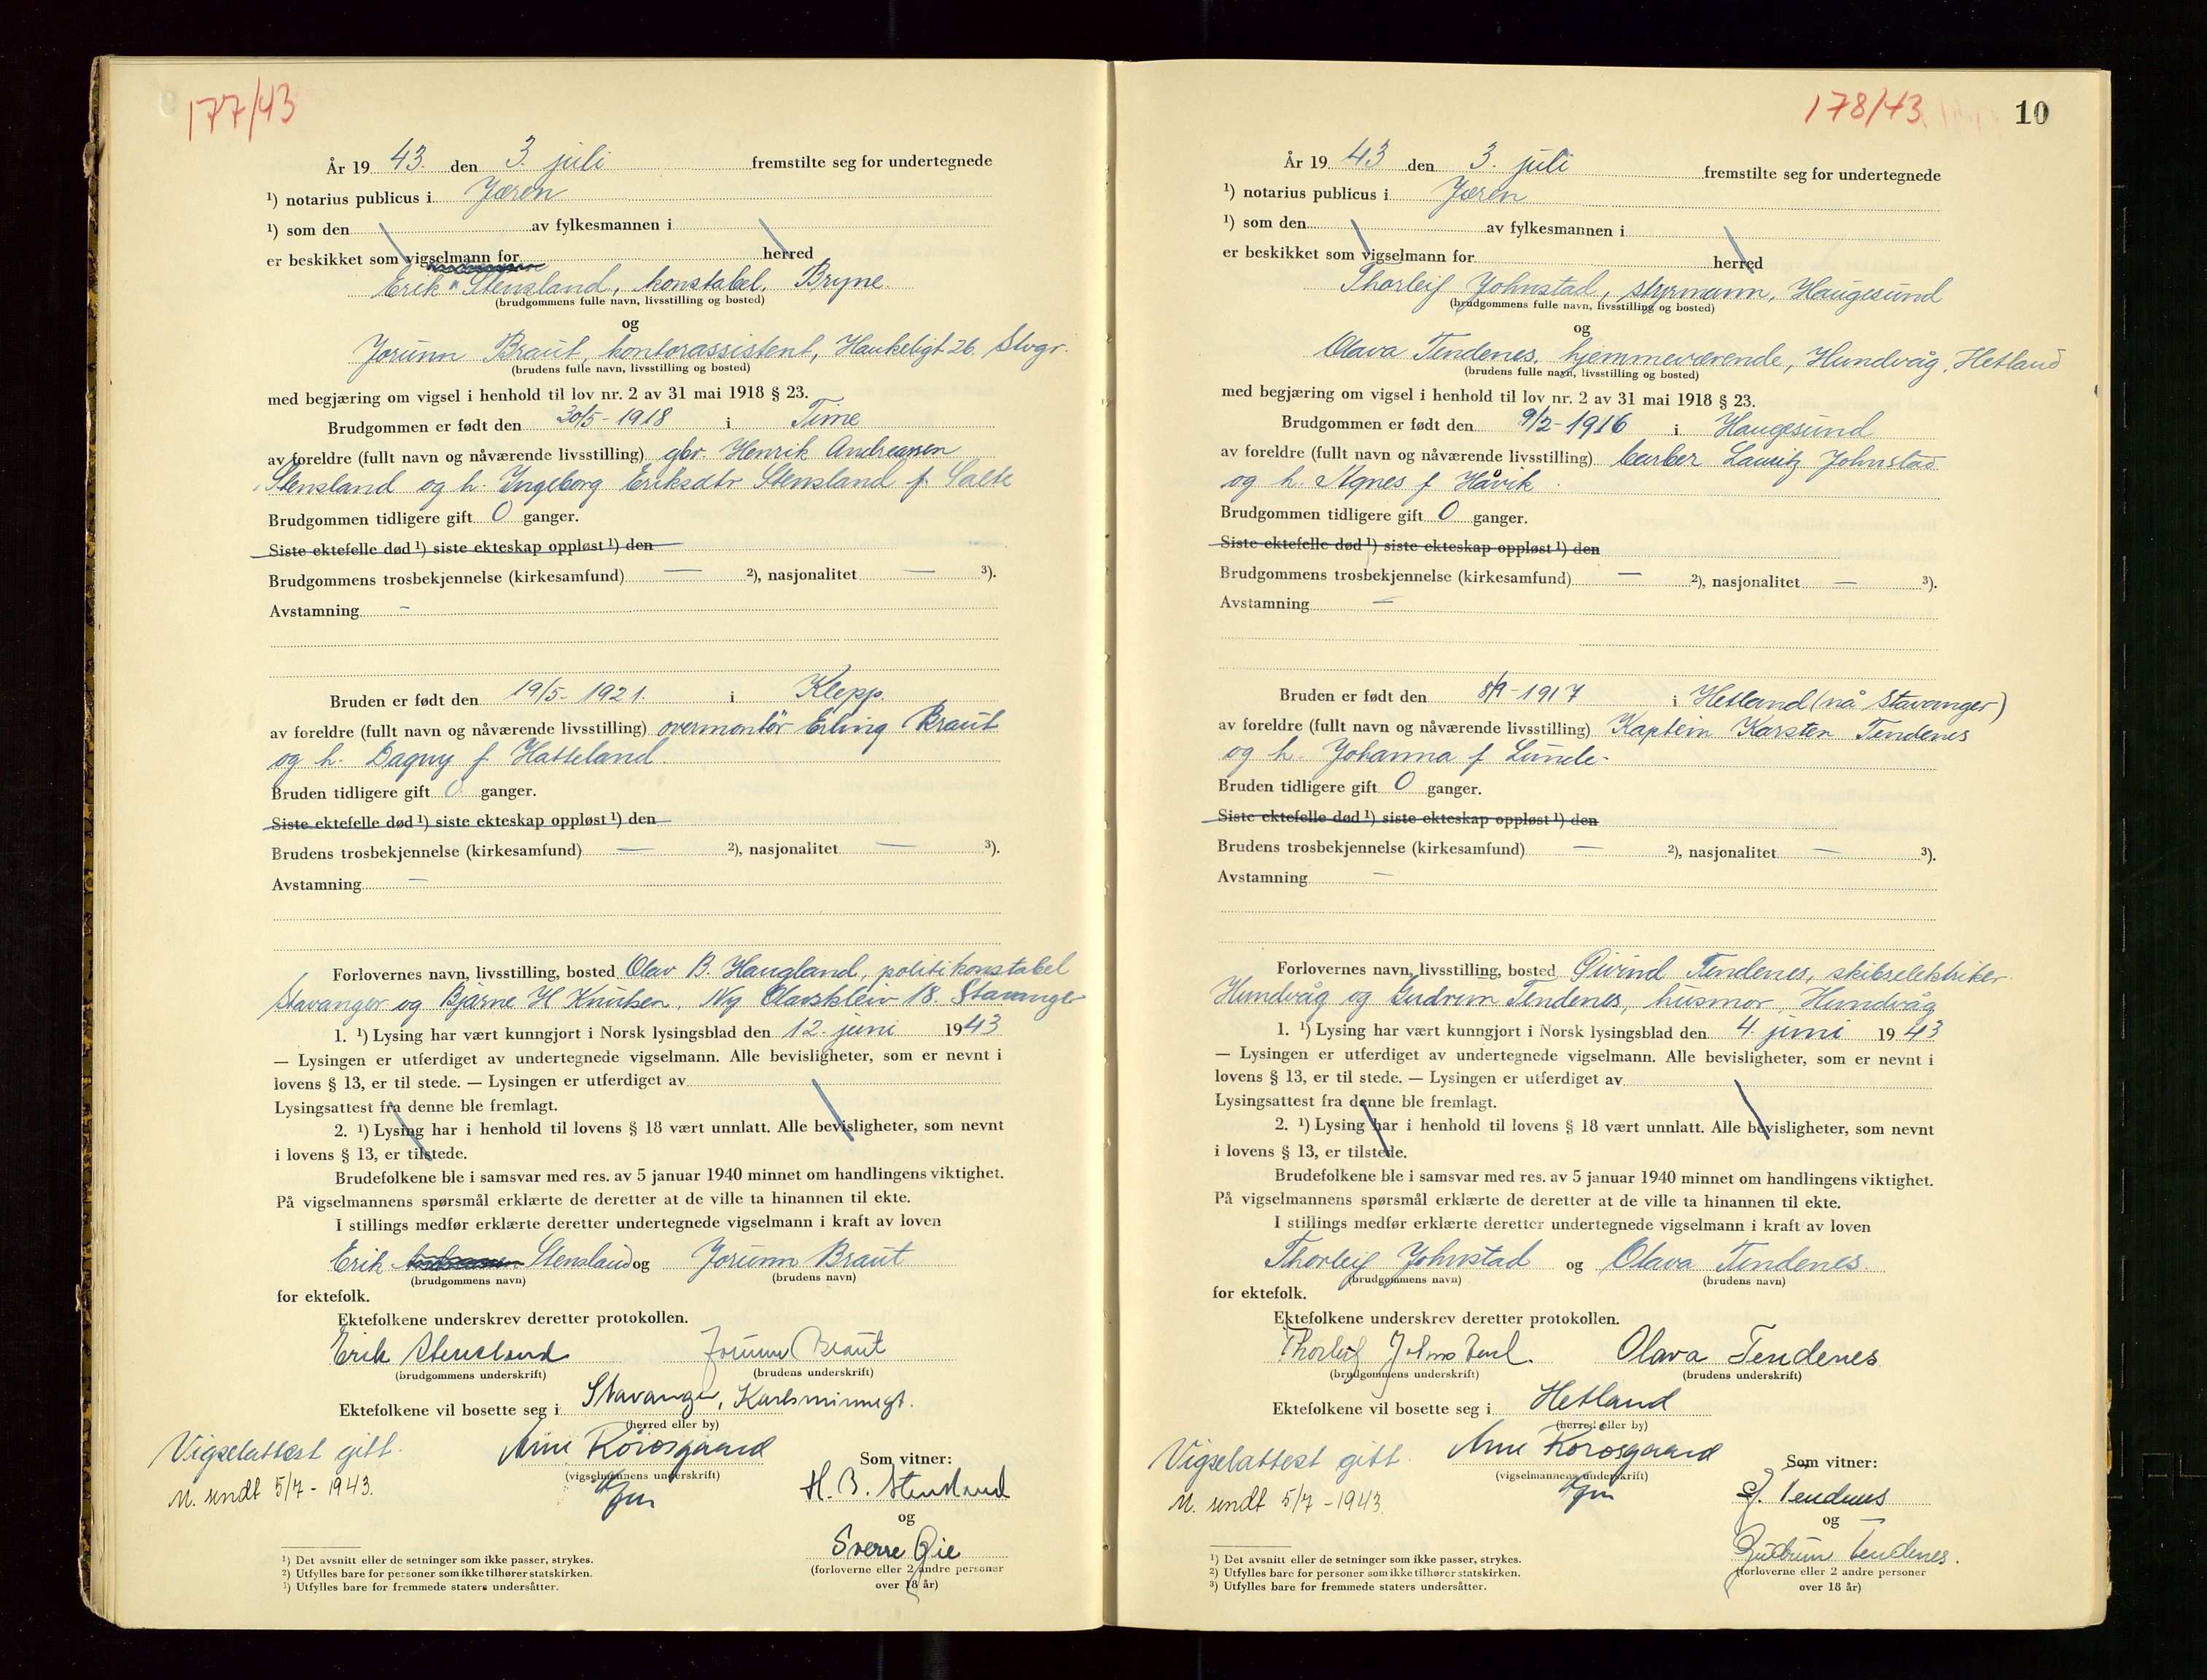 177/43
År 19 43. den 3. juli fremstilte seg for undertegnede
¹) notarius publicus i Jæren
¹) som den av fylkesmannen i
er beskikket som vigselmann for herred
Erik Stensland, konstabel, Bryne.
(brudgommens fulle navn, livsstilling og bosted)
og
Jorunn Braut, kontorassistent, Haukeligt 26. Stvgr.
(brudens fulle navn, livsstilling og bosted)
med begjæring om vigsel i henhold til lov nr. 2 av 31 mai 1918 § 23.
Brudgommen er født den 30/5-1918 i Time
av foreldre (fullt navn og nåværende livsstilling) gbr. Henrik Andreassen
Stensland og h. Ingeborg Eriksdtr Stensland f Salte
Brudgommen tidligere gift 0 ganger.
Siste ektefelle død ¹) siste ekteskap oppløst ¹) den
Brudgommens trosbekjennelse (kirkesamfund) — ²), nasjonalitet — ³).
Avstamning –
Bruden er født den 19/5-1921. i Klepp.
av foreldre (fullt navn og nåværende livsstilling) overmontör Erling Braut
og h. Dagny f Hatteland.
Bruden tidligere gift 0 ganger.
Siste ektefelle død ¹) siste ekteskap oppløst ¹) den
Brudens trosbekjennelse (kirkesamfund) — ²), nasjonalitet — ³).
Avstamning –
Forlovernes navn, livsstilling, bosted Olav B. Haugland, politikonstabel
Stavanger og Bjarne H Knutsen, Ny Olavskleiv 18. Stavanger
1. ¹) Lysing har vært kunngjort i Norsk lysingsblad den 12. juni 1943
— Lysingen er utferdiget av undertegnede vigselmann. Alle bevisligheter, som er nevnt i
lovens § 13, er til stede. — Lysingen er utferdiget av
Lysingsattest fra denne ble fremlagt.
2. ¹) Lysing har i henhold til lovens § 18 vært unnlatt. Alle bevisligheter, som nevnt
i lovens § 13, er tilstede.
Brudefolkene ble i samsvar med res. av 5 januar 1940 minnet om handlingens viktighet.
På vigselmannens spørsmål erklærte de deretter at de ville ta hinannen til ekte.
I stillings medfør erklærte deretter undertegnede vigselmann i kraft av loven
Erik Stensland og Jorunn Braut
(brudgommens navn) (brudens navn)
for ektefolk.
Ektefolkene underskrev deretter protokollen.
Erik Stensland Jorunn Braut
(brudgommens underskrift) (brudens underskrift)
Ektefolkene vil bosette seg i Stavanger, Karlsminnegt.
(herred eller by)
Vigselattest gitt. Arne Rorosgaard
(vigselmannens underskrift) Som vitner:
M. sendt 5/7-1943. H. B. Stensland
og
Sverre Gie
(forloverne eller 2 andre personer
over 18 år)
¹) Det avsnitt eller de setninger som ikke passer, strykes.
²) Utfylles bare for personer som ikke tilhører statskirken.
³) Utfylles bare for fremmede staters undersåtter.
178/43 10
År 19 43 den 3. juli fremstilte seg for undertegnede
¹) notarius publicus i Jæren
¹) som den av fylkesmannen i
er beskikket som vigselmann for herred
Thorleif Johnstad, styrmann, Haugesund
(brudgommens fulle navn, livsstilling og bosted)
og
Olava Tendenes, hjemmeværende, Hundvåg, Hetland
(brudens fulle navn, livsstilling og bosted)
med begjæring om vigsel i henhold til lov nr. 2 av 31 mai 1918 § 23.
Brudgommen er født den 9/2-1916 i Haugesund
av foreldre (fullt navn og nåværende livsstilling) barber Lauritz Johnstad
og h. Agnes f Håvik.
Brudgommen tidligere gift 0 ganger.
Siste ektefelle død ¹) siste ekteskap oppløst ¹) den
Brudgommens trosbekjennelse (kirkesamfund) — ²), nasjonalitet — ³).
Avstamning –
Bruden er født den 8/9-1917 i Hetland (nå Stavanger)
av foreldre (fullt navn og nåværende livsstilling) Kaptein Karsten Tendenes
og h. Johanna f Lunde.
Bruden tidligere gift 0 ganger.
Siste ektefelle død ¹) siste ekteskap oppløst ¹) den
Brudens trosbekjennelse (kirkesamfund) — ²), nasjonalitet — ³).
Avstamning –
Forlovernes navn, livsstilling, bosted Øivind Tendenes, skibselektriker
Hundvåg og Gudrun Tendenes, husmor, Hundvåg
1. ¹) Lysing har vært kunngjort i Norsk lysingsblad den 4. juni 1943
— Lysingen er utferdiget av undertegnede vigselmann. Alle bevisligheter, som er nevnt i
lovens § 13, er til stede. — Lysingen er utferdiget av
Lysingsattest fra denne ble fremlagt.
2. ¹) Lysing har i henhold til lovens § 18 vært unnlatt. Alle bevisligheter, som nevnt
i lovens § 13, er tilstede.
Brudefolkene ble i samsvar med res. av 5 januar 1940 minnet om handlingens viktighet.
På vigselmannens spørsmål erklærte de deretter at de ville ta hinannen til ekte.
I stillings medfør erklærte deretter undertegnede vigselmann i kraft av loven
Thorleif Johnstad og Olava Tendenes
(brudgommens navn) (brudens navn)
for ektefolk.
Ektefolkene underskrev deretter protokollen.
Thorleif Johnstad. Olava Tendenes
(brudgommens underskrift) (brudens underskrift)
Ektefolkene vil bosette seg i Hetland
(herred eller by)
Vigselattest gitt. Arne Rorosgaard
(vigselmannens underskrift) Som vitner:
M. sendt 5/7-1943. Ø. Tendenes
og
Gudrun Tendenes.
(forloverne eller 2 andre personer
over 18 år)
¹) Det avsnitt eller de setninger som ikke passer, strykes.
²) Utfylles bare for personer som ikke tilhører statskirken.
³) Utfylles bare for fremmede staters undersåtter.